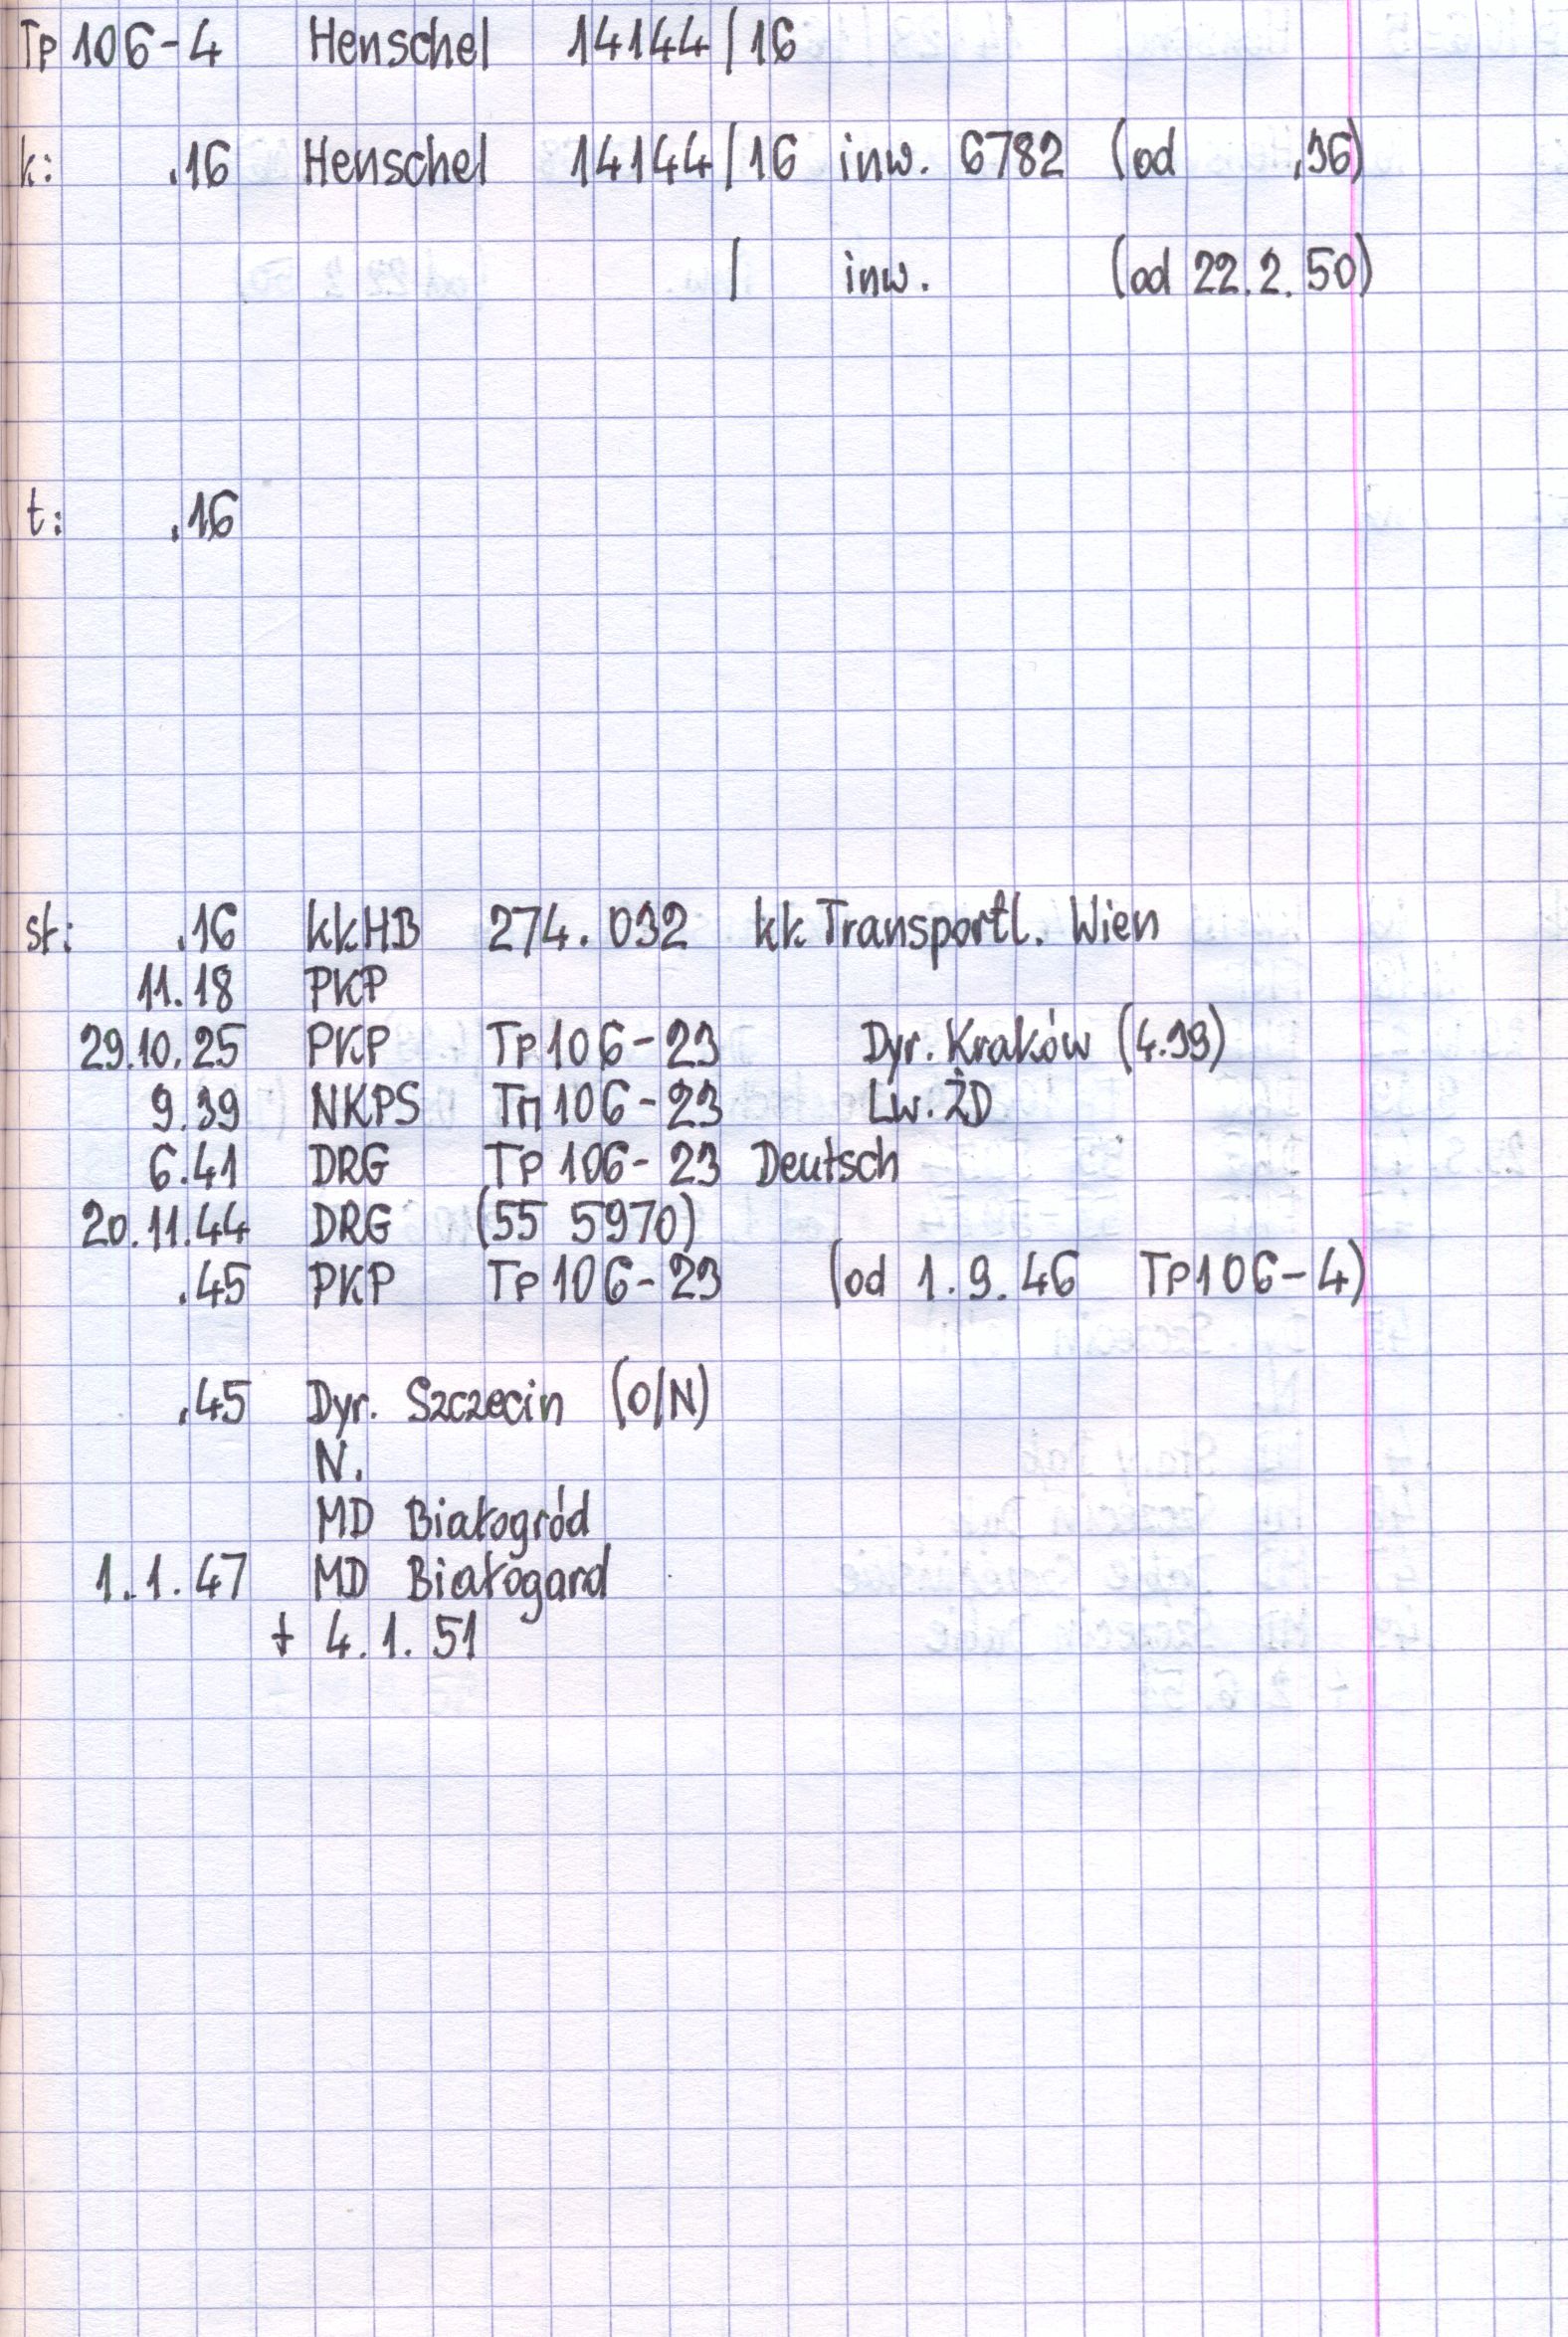 Tp 106-4 Henschel 14144/16
k: .16 Henschel 14144/16 inw. 6782 (od .36)
/ inw. (od 22.2.50)
t: .16
st: .16 kkHB 274.032 kk Transportl. Wien
11.18 PKP
29.10.25 PKP Tp 106-23 Dyr. Kraków (4.39)
9.39 NKPS Tп 106-23 Lw. ŻD
6.41 DRG Tp 106-23 Deutsch
20.11.44 DRG (55 5970)
.45 PKP Tp 106-23 (od 1.9.46 Tp106-4)
.45 Dyr. Szczecin (O/N)
N.
MD Białogród
1.1.47 MD Białogard
+ 4.1.51